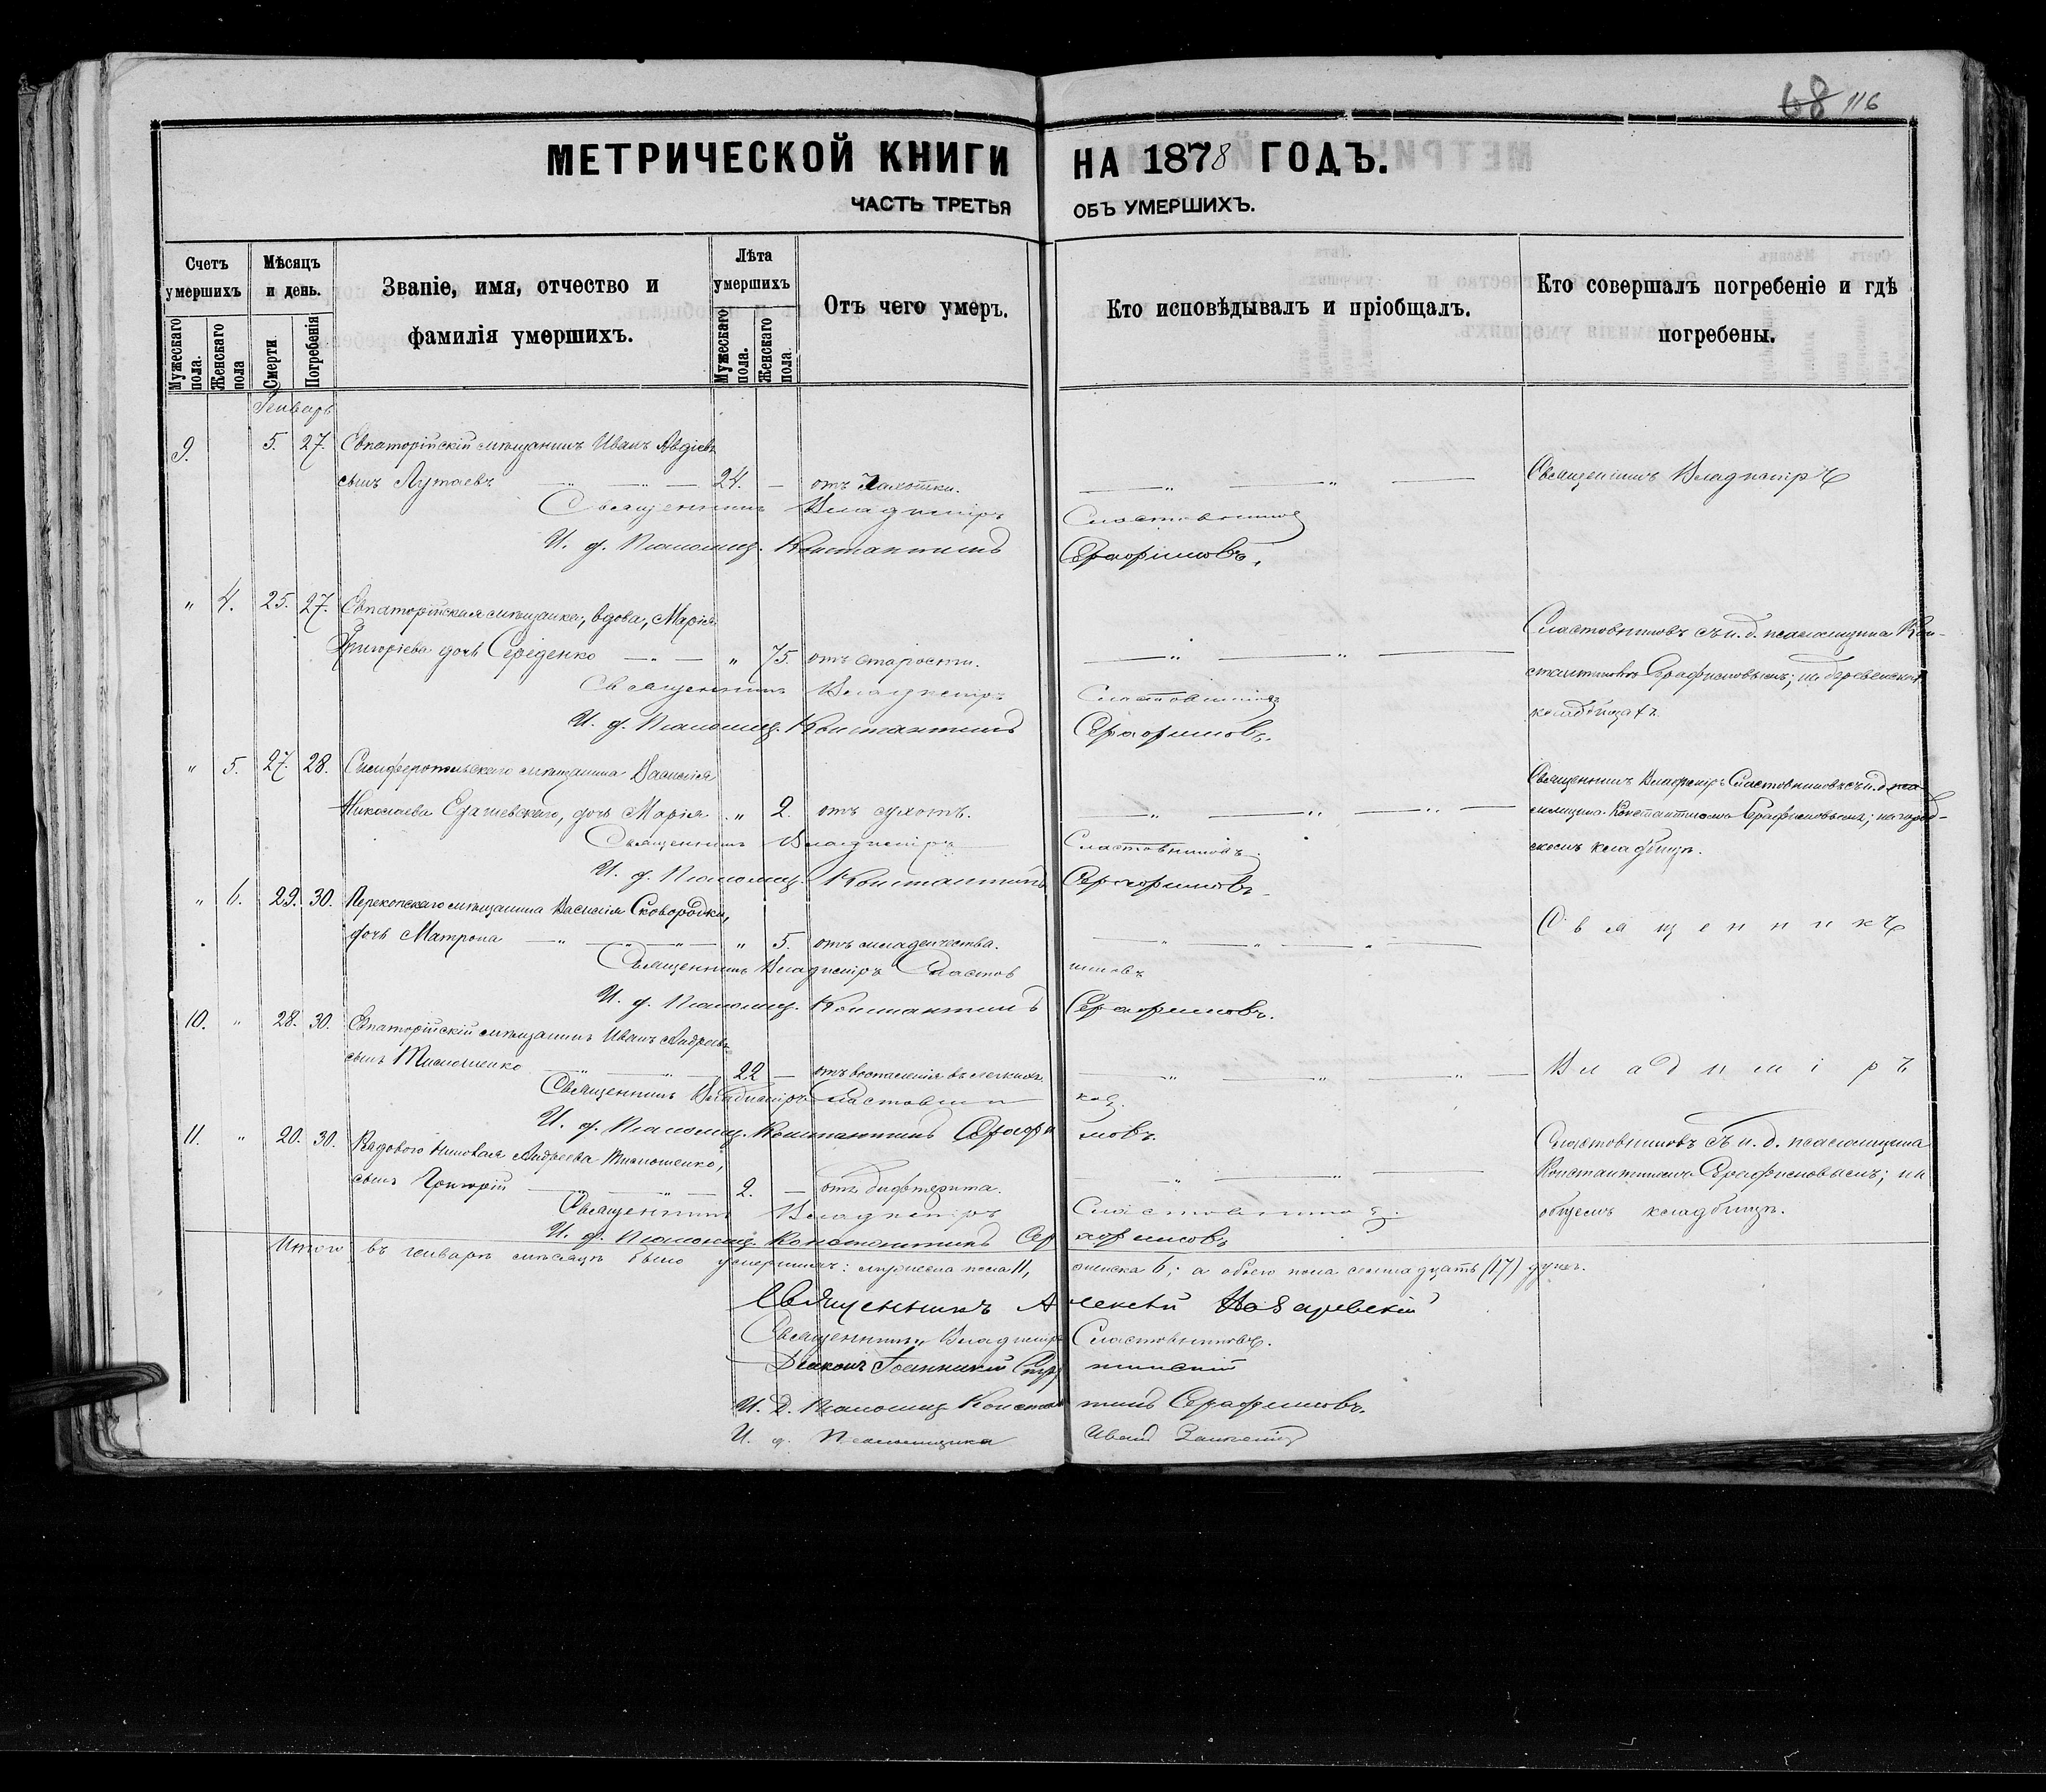 68 116
МЕТРИЧЕСКОЙ КНИГИ НА 1878 ГОДЪ.
ЧАСТЬ ТРЕТЬЯ ОБЪ УМЕРШИХЪ.
Счетъ умершихъ
Мужескаго пола.
Женскаго пола
Мѣсяцъ и день.
Смерти
Погребенія
Званіе, имя, отчество и фамилія умершихъ.
Лѣта умершихъ
Мужескаго пола.
Женскаго пола.
Отъ чего умеръ.
Кто исповѣдывалъ и пріобщалъ.
Кто совершалъ погребеніе и гдѣ погребены.
Генварь
9. 5. 27. Евпаторійскій мѣщанинъ Иванъ Авдіевъ
сынъ 24. — отъ чахотки. Священникъ Владиміръ
Священникъ Владиміръ Сластовниковъ
И. д. Псаломщ. Константинъ Серафимовъ.
" 4. 25. 27. Евпаторійская мѣщанка, вдова, Марія
Григоріева дочь Середенко " 75. отъ старости.
Сластовниковъ съ и. д. псаломщика Кон-
стантиномъ Серафимовымъ; на деревенскомъ
кладбищѣ.
Священникъ Владиміръ Сластовниковъ
И. д. Псаломщ. Константинъ Серафимовъ.
" 5. 27. 28. Симферопольскаго мѣщанина Василія
Николаева дочь Марія " 2. отъ сухотъ.
Священникъ Владиміръ Сластовниковъ съ и. д. пса-
ломщика Константиномъ Серафимовымъ; на город-
скомъ кладбищѣ.
Священникъ Владиміръ Сластовниковъ.
И. д. Псаломщ. Константинъ Серафимовъ.
" 6. 29. 30. Перекопскаго мѣщанина Василія Сковородки,
дочь Матрона " 5. отъ младенчества. Священникъ
Священникъ Владиміръ Сластовниковъ
И. д. Псаломщ. Константинъ Серафимовъ.
10. " 28. 30. Евпаторійскій мѣщанинъ Иванъ Андреевъ
сынъ Тимошенко 22 — отъ воспаленія въ легкихъ. Владиміръ
Священникъ Владиміръ Сластовниковъ.
И. д. Псаломщ. Константинъ Серафимовъ.
11. " 20. 30. Рядового Николая Андреева Тимошенко,
сынъ Григорій 2. — отъ дифтерита.
Сластовниковъ съ и. д. псаломщика
Константиномъ Серафимовымъ; на
общемъ кладбищѣ.
Священникъ Владиміръ Сластовниковъ.
И. д. Псаломщ. Константинъ Серафимовъ
Итого въ генварѣ мѣсяцѣ было умершихъ: мужеска пола 11, женска 6; а обоего пола семнадцать (17) душъ.
Священникъ Алексѣй
Священникъ Владиміръ Сластовниковъ.
Діаконъ Іоанникій
И. д. Псаломщ. Константинъ Серафимовъ.
И. д. Псаломщика Иванъ